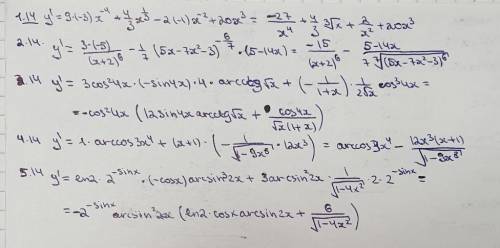 1.14 y' = 9·(-3)x⁻⁴ + 4/3 x^(1/3) - 2·(-1)x⁻² + 20x³ = -27/x⁴ + 4/3 ∛x + 2/x² + 20x³
2.14. y' = 3·(-5)/(x+2)⁶ - 1/7 (5x-7x²-3)^(-6/7) · (5-14x) = -15/(x+2)⁶ - (5-14x)/(7 ⁷√((5x-7x²-3)⁶))
3.14 y' = 3cos²4x·(-sin4x)·4·arcctg√x + (-1/(1+x))·1/(2√x) cos³4x =
= -cos²4x (12sin4x arcctg√x + cos4x/(√x(1+x)))
4.14 y' = 1·arccos3x⁴ + (x+1)·(-1/√(1-9x⁸) · 12x³) = arccos3x⁴ - 12x³(x+1)/√(1-9x⁸)
5.14 y' = ln2·2^(-sinx)·(-cosx)arcsin³2x + 3arcsin²2x · 1/√(1-4x²) · 2·2^(-sinx) =
= -2^(-sinx) arcsin²2x (ln2·cosx arcsin2x + 6/√(1-4x²))